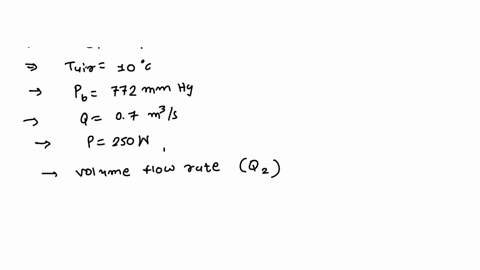 ⇒ Tair = 10°c
→ Pb = 772 mm Hg
→ Q = 0.7 m³/s
→ P = 250W
→ volume flow rate (Q₂)